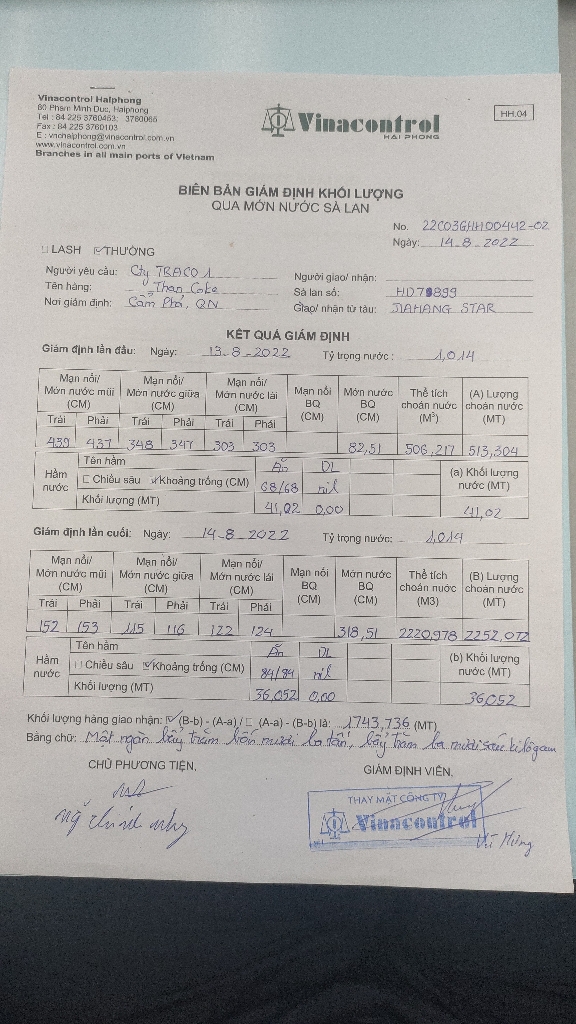 Vinacontrol Haiphong
80 Pham Minh Duc, Haiphong
Tel : 84 225 3760453; 3760065
Fax : 84 225 3760103
E : vnchaiphong@vinacontrol.com.vn
www.vinacontrol.com.vn
Branches in all main ports of Vietnam
Vinacontrol
HAI PHONG
HH.04
BIÊN BẢN GIÁM ĐỊNH KHỐI LƯỢNG
QUA MỚN NƯỚC SÀ LAN
No. 22C03GHH00442-02
Ngày: 14-8-2022
LASH THƯỜNG
Người yêu cầu: Cty TRACO 1
Người giao/ nhận:
Tên hàng: Than Coke
Sà lan số: HD 899
Nơi giám định: Cẩm Phả, QN
Giao/ nhận từ tàu: JIAHANG STAR
KẾT QUẢ GIÁM ĐỊNH
Giám định lần đầu: Ngày: 13-8-2022 Tỷ trọng nước: 1,014
Mạn nổi/ Mớn nước mũi (CM) Mạn nổi/ Mớn nước giữa (CM) Mạn nổi/ Mớn nước lái (CM) Mạn nổi BQ (CM) Mớn nước BQ (CM) Thể tích choán nước (M³) (A) Lượng choán nước (MT)
Trái Phải Trái Phải Trái Phải
439 437 348 347 303 303 82,51 506,217 513,304
Hầm nước
Tên hầm ĐL
Chiều sâu Khoảng trống (CM) 68/68 nil
(a) Khối lượng nước (MT)
Khối lượng (MT) 41,02 0,00 41,02
Giám định lần cuối: Ngày: 14-8-2022 Tỷ trọng nước: 1,014
Mạn nổi/ Mớn nước mũi (CM) Mạn nổi/ Mớn nước giữa (CM) Mạn nổi/ Mớn nước lái (CM) Mạn nổi BQ (CM) Mớn nước BQ (CM) Thể tích choán nước (M3) (B) Lượng choán nước (MT)
Trái Phải Trái Phải Trái Phải
152 153 115 116 122 124 318,51 2220,978 2252,072
Hầm nước
Tên hầm ĐL
Chiều sâu Khoảng trống (CM) 84/84 nil
(b) Khối lượng nước (MT)
Khối lượng (MT) 36,052 0,00 36,052
Khối lượng hàng giao nhận: (B-b) - (A-a) / (A-a) - (B-b) là: 1743,736 (MT)
Bằng chữ: Một ngàn bẩy trăm bốn mươi ba tấn, bẩy trăm ba mươi sáu kilôgam
CHỦ PHƯƠNG TIỆN,
GIÁM ĐỊNH VIÊN,
THAY MẶT CÔNG TY
Vinacontrol